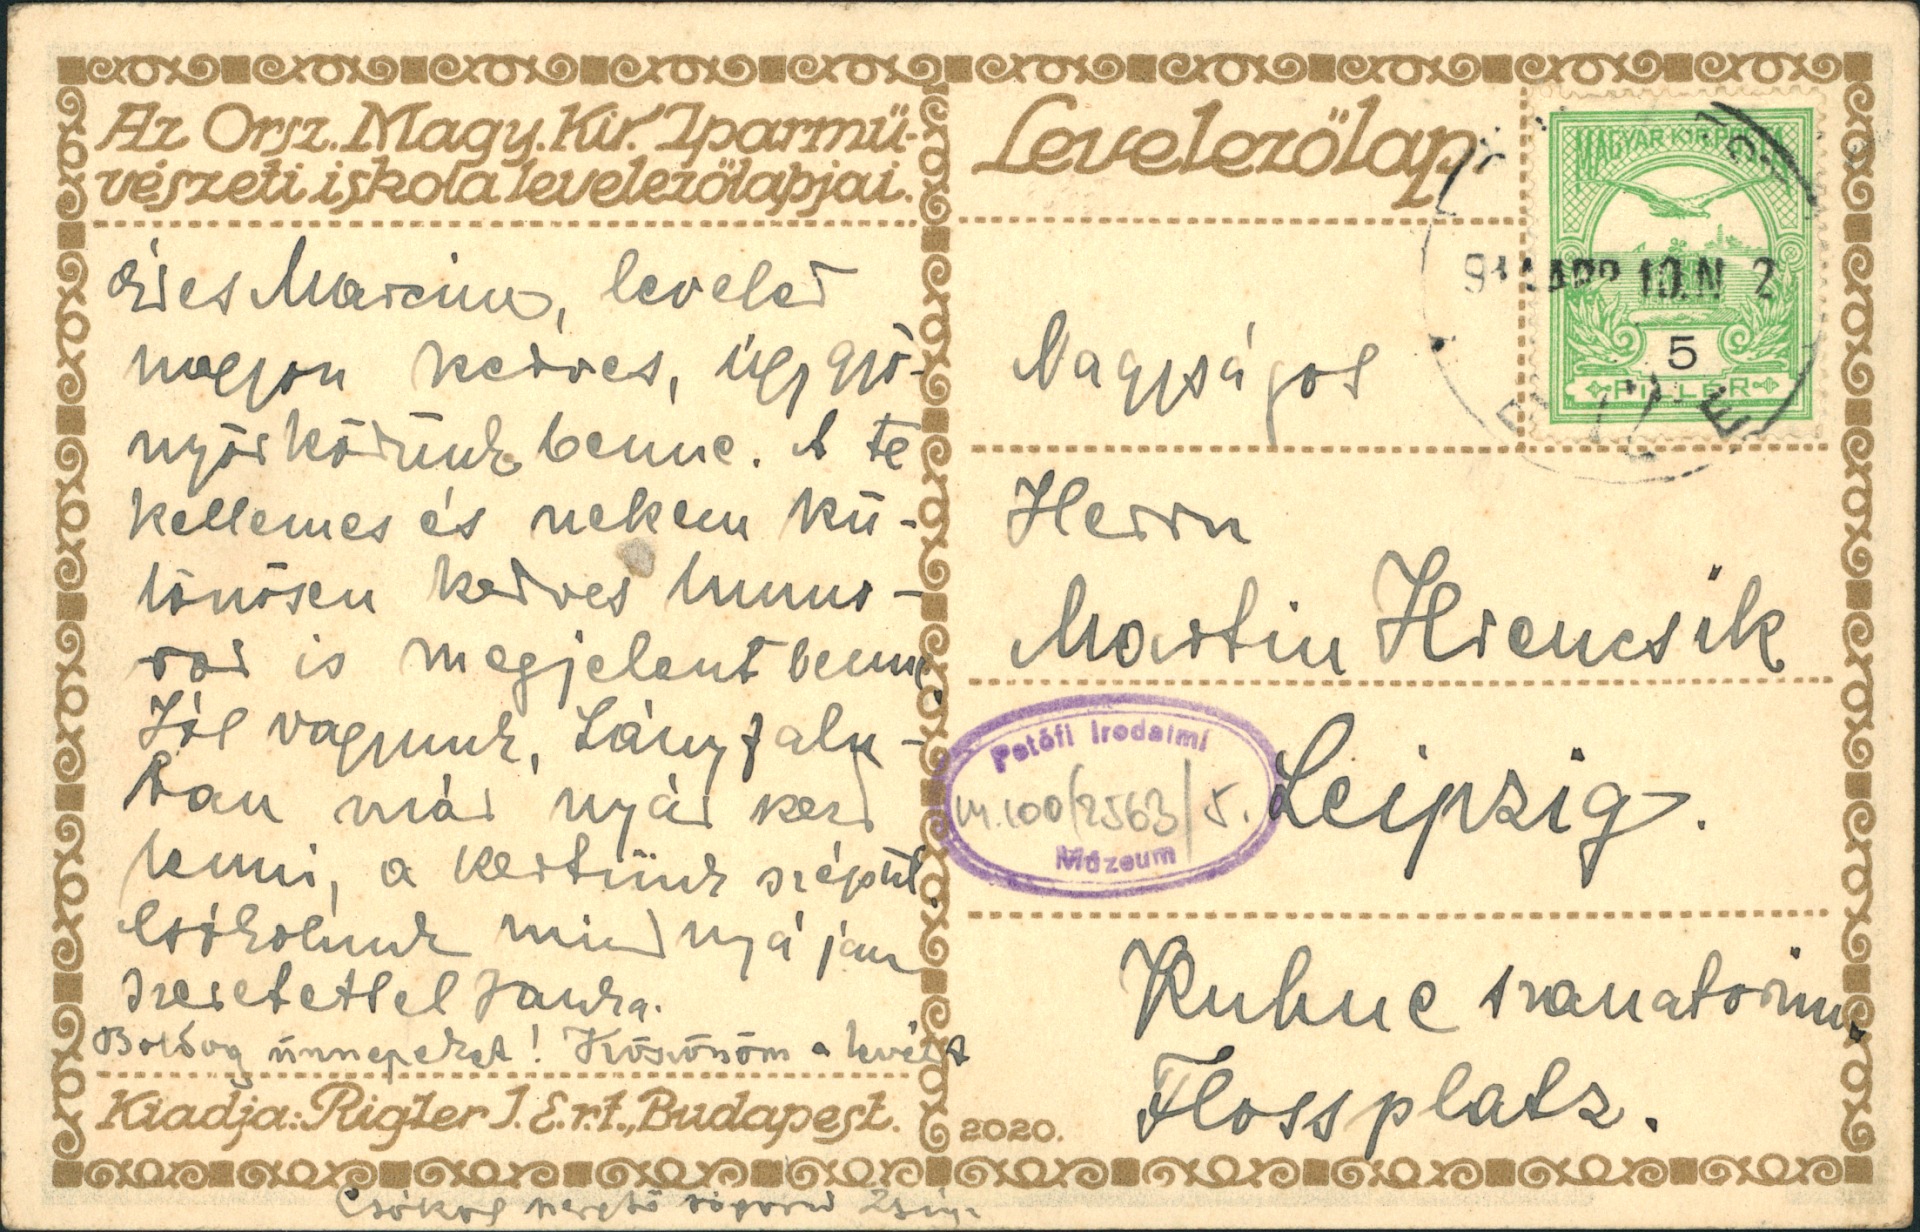 Az Orsz. Magy. Kir. Iparmű-
vészeti iskola levelezőlapjai.
Édes Marcim, leveled
nagyon kedves, úgy gyö-
nyörködünk benne. A te
kellemes és nekem kü-
lönösen kedves humo-
rod is megjelent benne.
Jól vagyunk, Leányfalu-
ban már nyár kezd
lenni, a kertünk szépül.
Csókolunk mindnyájan
szeretettel Janka.
Boldog ünnepeket! Köszönöm a levelet
Kiadja: Rigler J. E. r.t., Budapest.
Csókol szerető sógorod
Levelezőlap.
MAGYAR KIR. POSTA
5
FILLÉR
10. N 2
Nagyságos
Herrn
Martin Hrencsik
Leipzig.
Petőfi Irodalmi
M.100/2563/5.
Múzeum
Kuhne szanatorium.
Flossplatz.
2020.